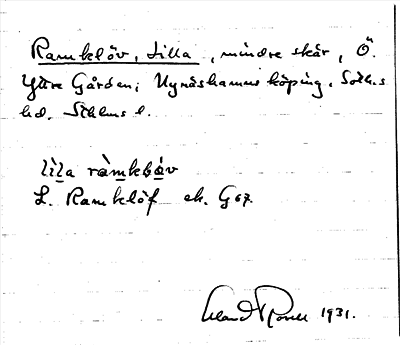 Ramklöv, Lilla, mindre skär, Ö.
Yttre Gården; Nynäshamns köping, Soth.s
hd. Sthlms l.
lìl̲a ràm̲klö̀v
L. Ramklöf ek. G 67.
1931.